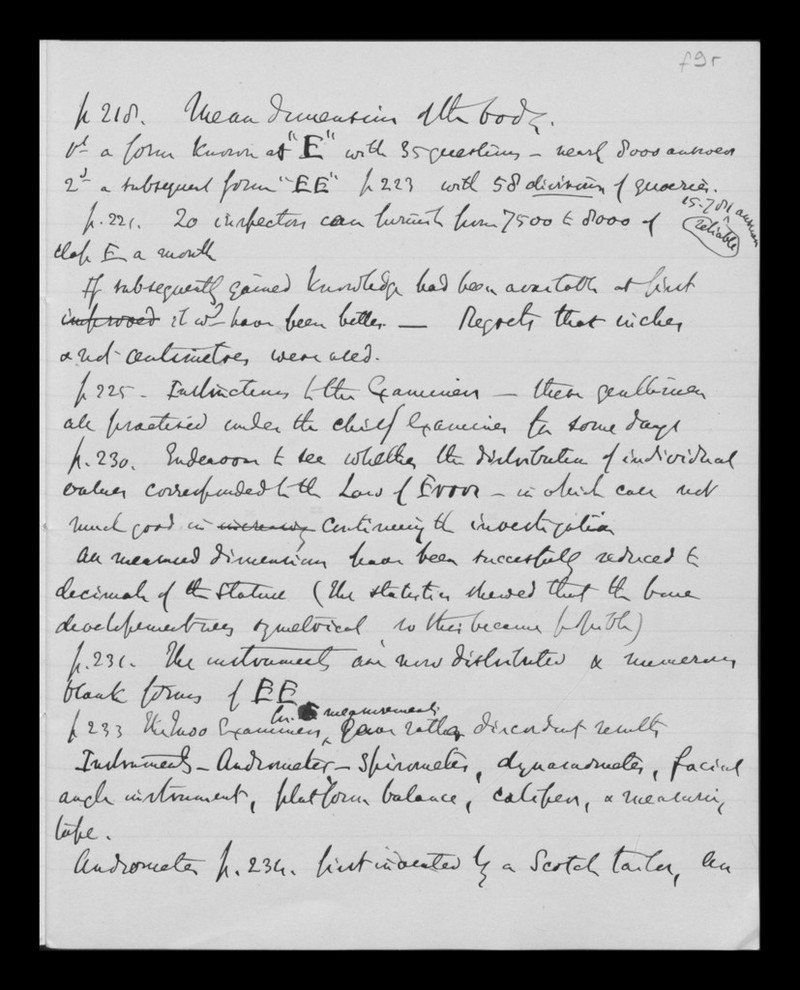 f9r
p 218. Mean dimension of the body.
1st a form known as "E" with 35 questions – nearly 8000 answers
2d a subsequent form "EE" p 223 with 58 divisions of queries.
15.781 answers
p. 221. 20 inspectors can furnish from 7500 to 8000 of reliable
class E a month
If subsequently gained knowledge had been available at first
it wd have been better — Regrets that inches
& not centimetres were used.
p 225 – Instructions to the Examiners — these gentlemen
all practised under the chief Examiner for some days
p. 230. Endeavour to see whether the distribution of individual
values corresponded to the Law of Error – in which case not
much good in increasing continuing the investigation
All measured dimensions have been successfully reduced to
decimals of the Stature (the statistics shewed that the bone
developement was symetrical so this became possible)
p. 231. The instruments are now distributed & numerous
blank forms of EE
in measurements
p 233 The Examiners gave rather discordant results
Instruments – Andrometer – Spirometer, dynamometer, facial
angle instrument, platform balance, calipers, & measuring
tape.
Andrometer p. 234. first invented by a Scotch tailor, an